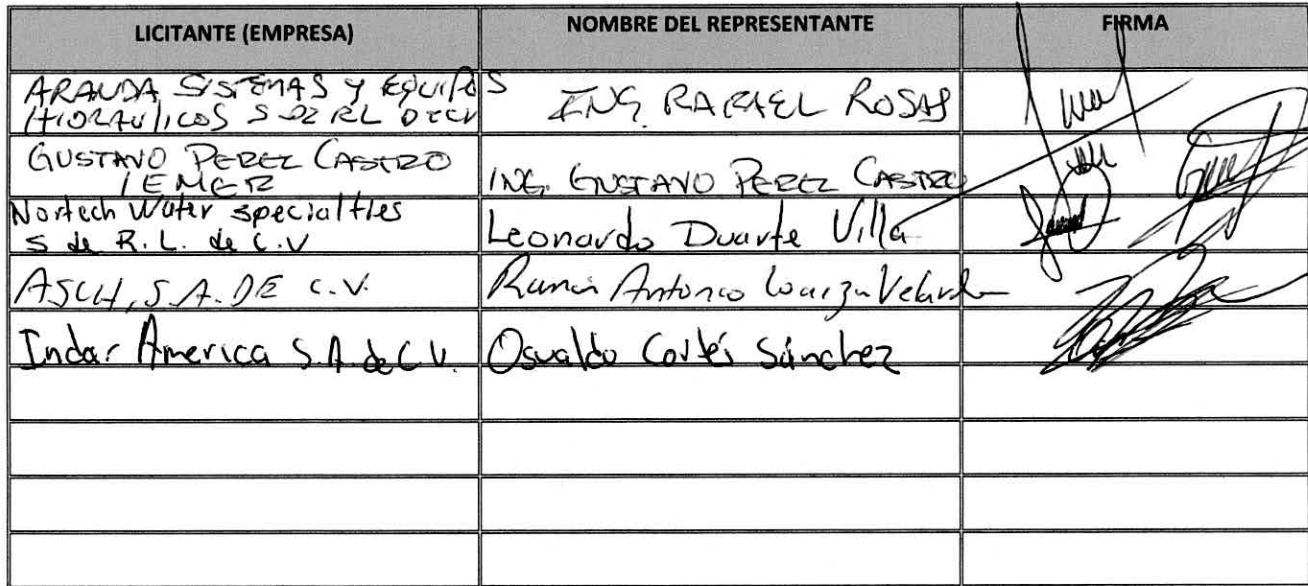 LICITANTE (EMPRESA) NOMBRE DEL REPRESENTANTE FIRMA
ARANDA SISTEMAS y EQUIPOS
HIDRAULICOS S DE RL DE CV
ING. RAFAEL ROSAS
GUSTAVO PEREZ CASTRO
IEMER
ING. GUSTAVO PEREZ CASTRO
Nortech Water specialties
S de R.L. de C.V
Leonardo Duarte Villa
ASCH, S.A. DE C.V.
Antonio
Indar America S.A. de C.V.
Osvaldo Cortés Sánchez